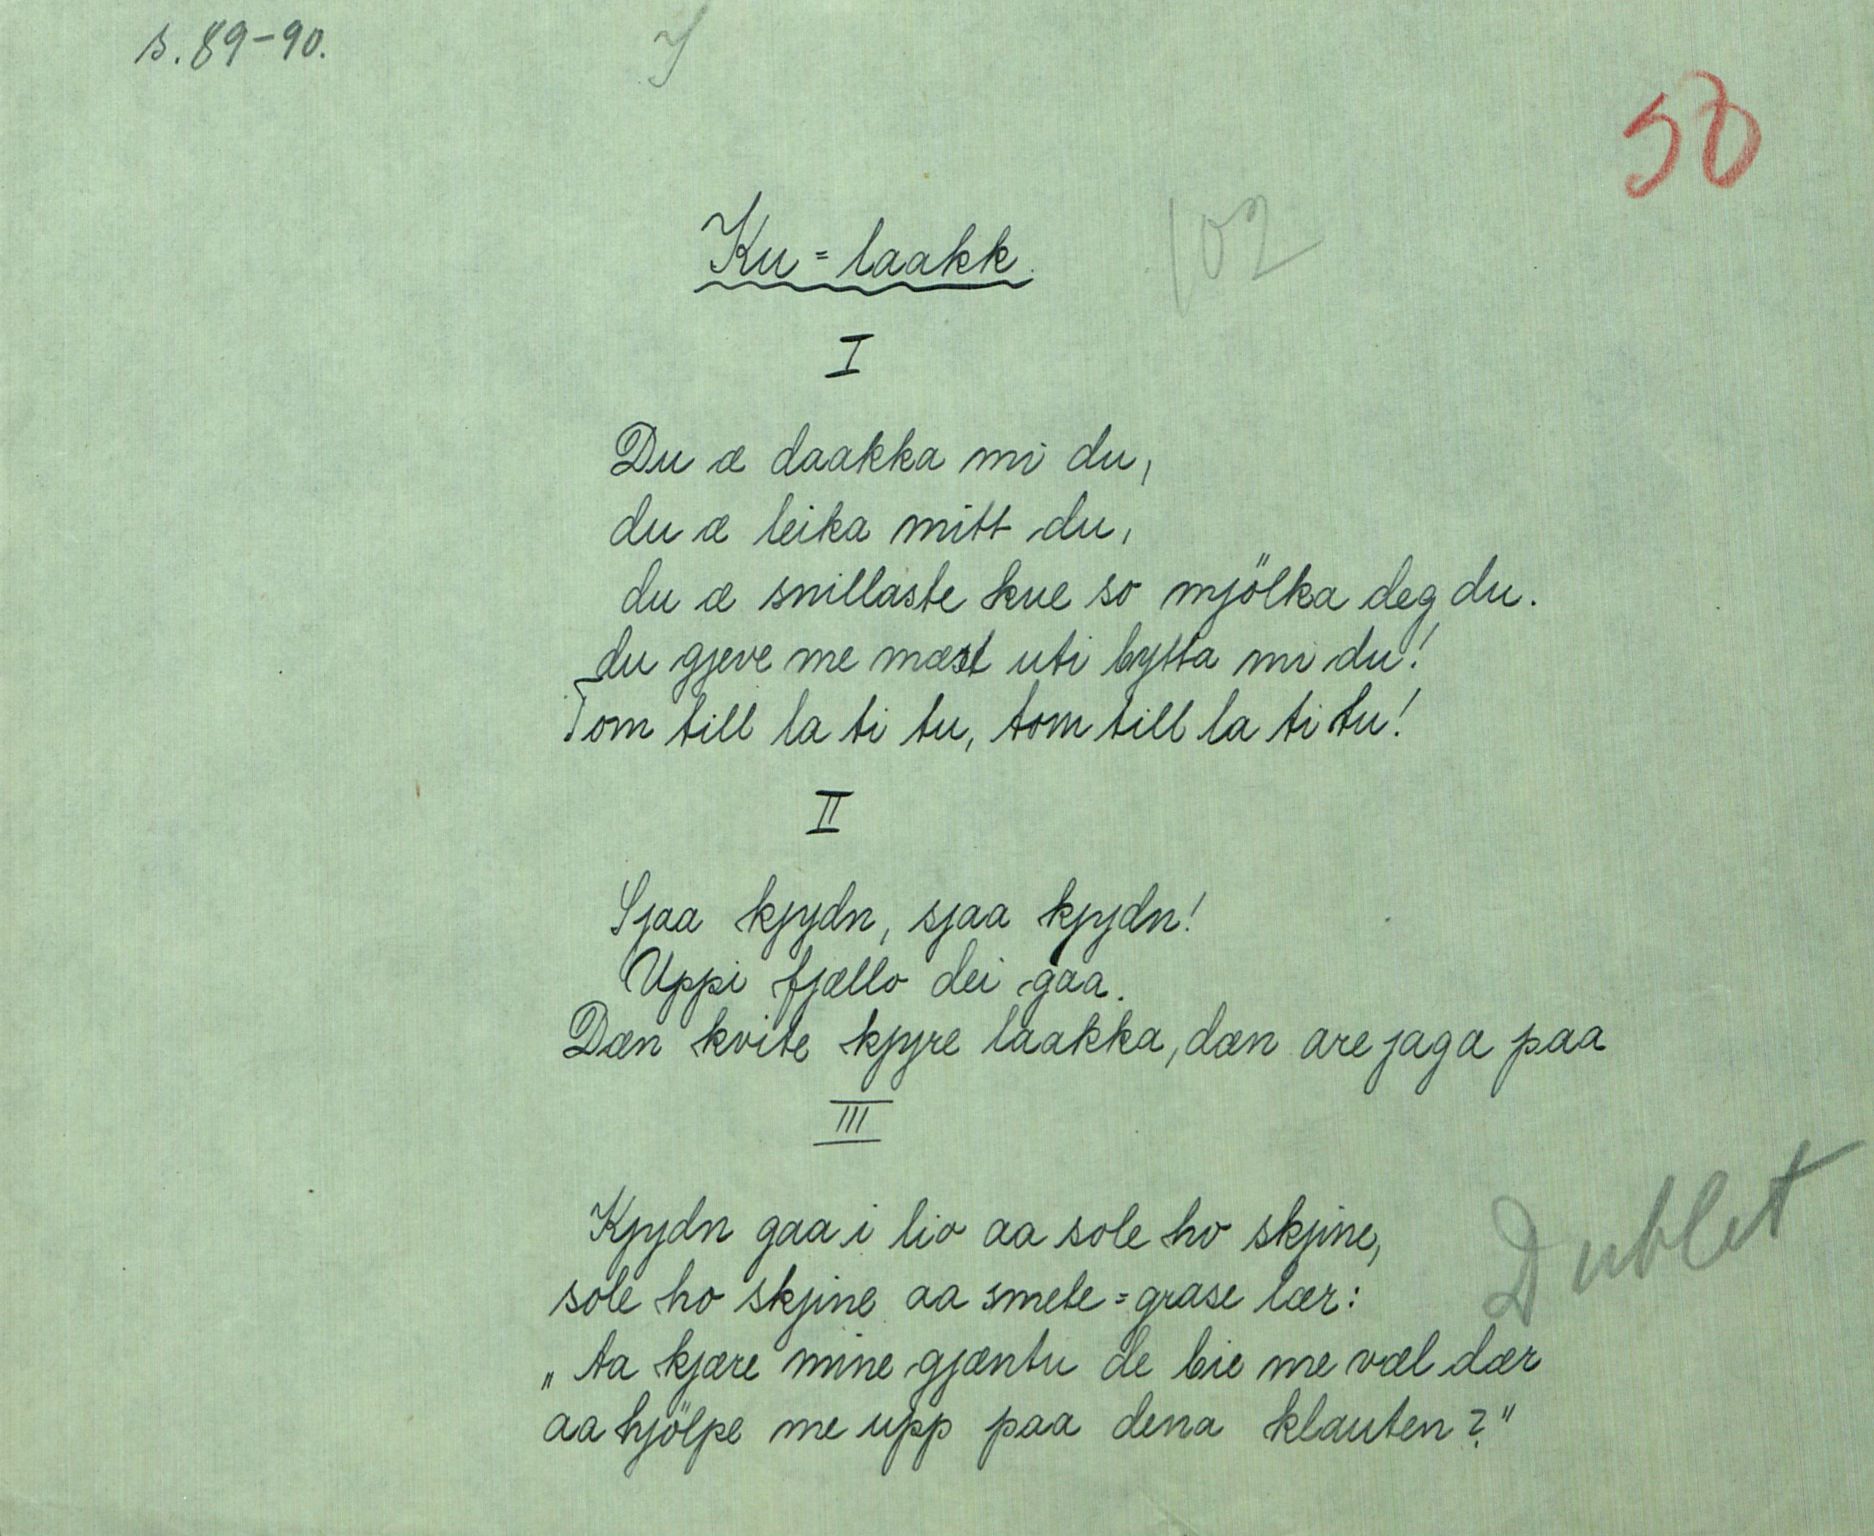 s. 89-90.
50
102
Ku = laakk.
I
Du æ daakka mi du,
du æ leika mitt du,
du æ snillaste kue so mjölka deg du.
du gjeve me mæst uti bytta mi du!
Tom till la ti tu, tom till la ti tu!
II
Sjaa kjydn, sjaa kjydn!
Uppi fjællo dei gaa.
Dæn kvite kjyre laakka, dæn are jaga paa
III
Kjydn gaa i lio aa sole ho skjine,
sole ho skjine aa smele = grase lær:
Dublet
„Aa kjære mine gjæntu de bie me væl dær
aa hjölpe me upp paa dena klauten?"